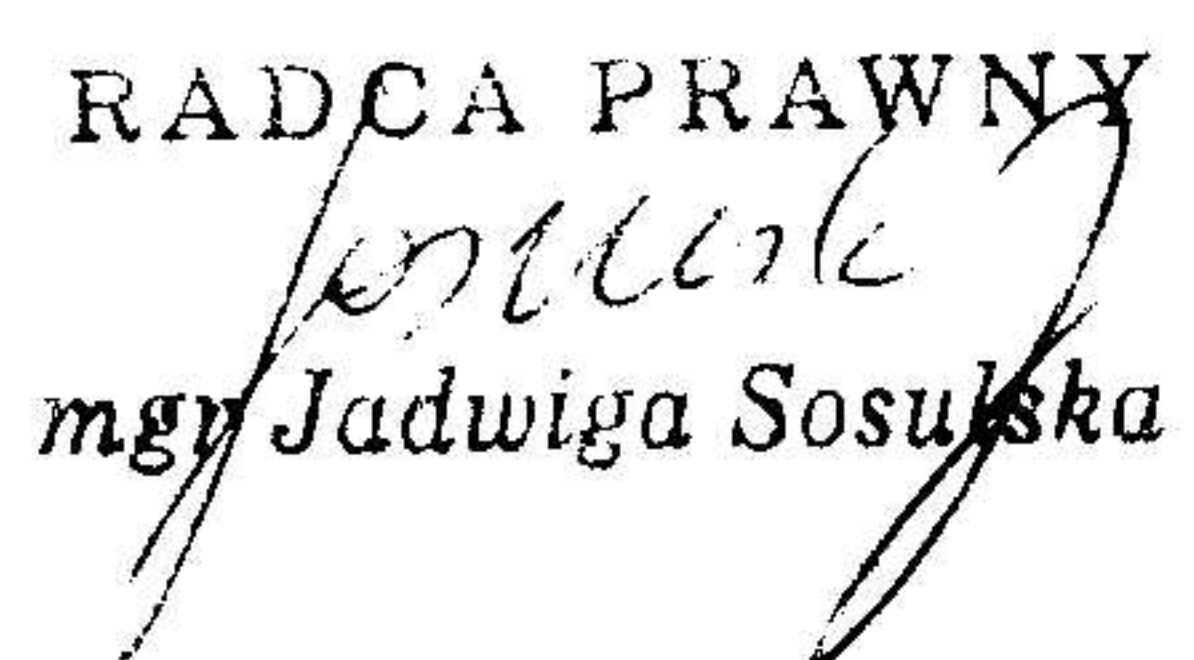 RADCA PRAWNY
mgr Jadwiga Sosulska